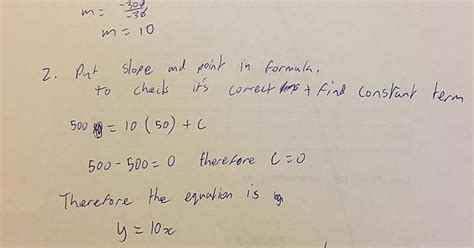 m = -300/-30
m = 10
2. Put slope and point in formula.
to check it's correct + find constant term
500 = 10 (50) + C
500 - 500 = 0 therefore C = 0
Therefore the equation is
y = 10x